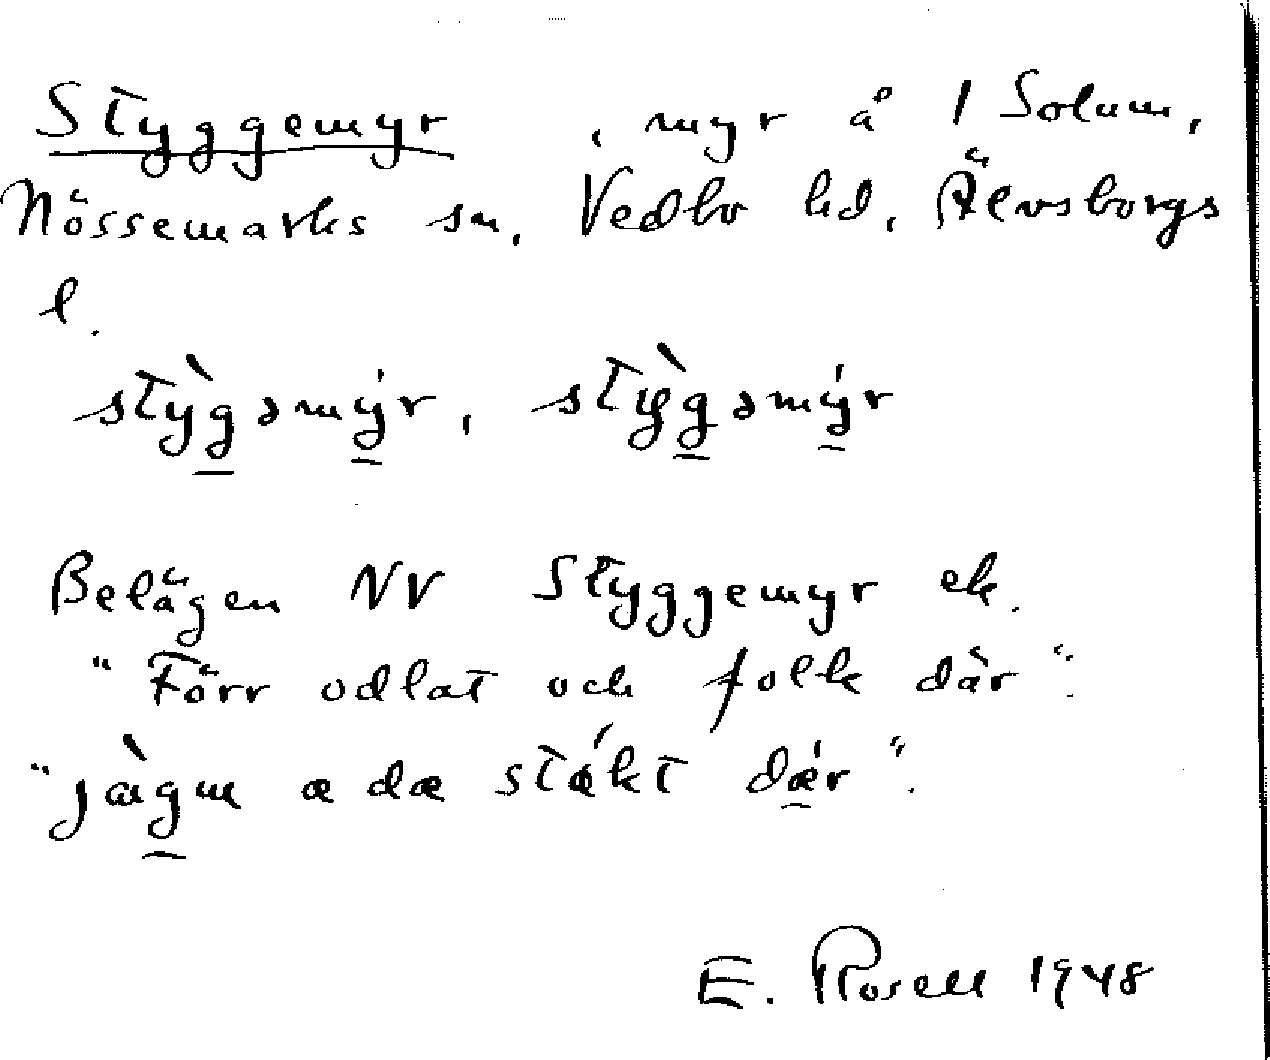 Styggemyr, myr å 1 Solum,
Nössemarks sn, Vedbo hd, Älvsborgs
l.
sty̆̀gəmýr, stỳgəmýr
Belägen NV Styggemyr ek.
"Förr odlat och folk där".
"jæ̀gm æ dæ stǽkt dǽr".
E. Rosell 1948